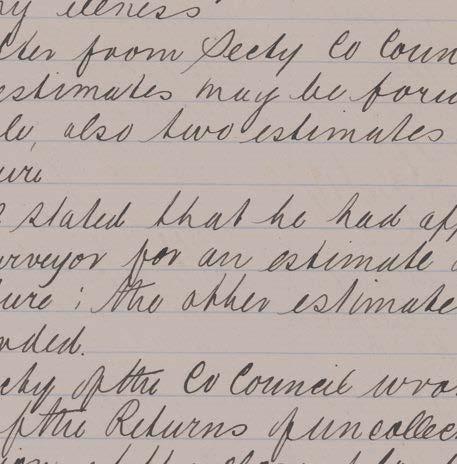 ny illness
tter from Secty Co Coun
estimates may be forw
le, also two estimates
ure
stated that he had ap
urveyor for an estimate
ture ; the other estimate
rded.
cty of the Co Council wro
f the Returns of uncollec